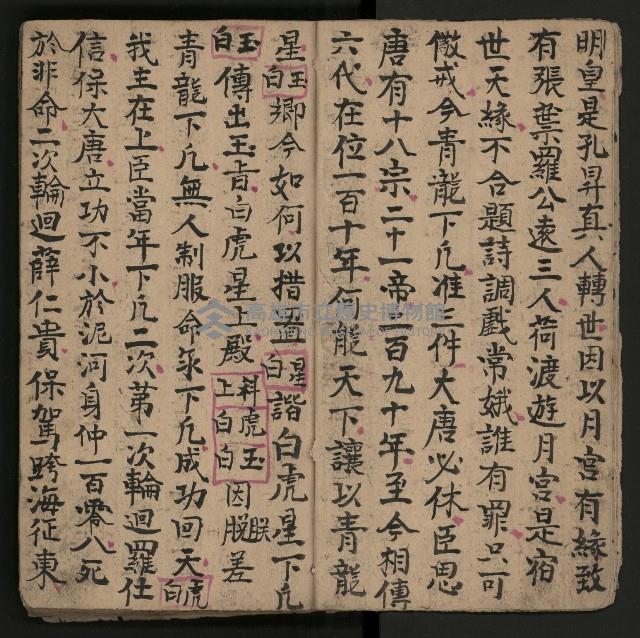 明皇是孔昇真人轉世因以月宮有緣致
有張葉羅公遠三人荷渡遊月宮是宿
世天緣不合題詩調戲常娥誰有罪只可
儆戒今青龍下凡准三件大唐必休臣思
唐有十八宗二十一帝二百九十年至今相傳
六代在位一百十年何能天下讓以青龍
星玉白卿今如何以措置星白諧白虎星下凡
玉白傳出玉旨白虎星上殿科虎上白玉白因脫朕差
青龍下凡無人制服命汆下凡成功回天虎白
我主在上臣當年下凡二次第一次輪迴羅仕
信保大唐立功不小於泥河身仲一百零八死
於非命二次輪迴薛仁貴保駕跨海征東
高雄市立歷史博物館
KAOHSIUNG MUSEUM OF HISTORY